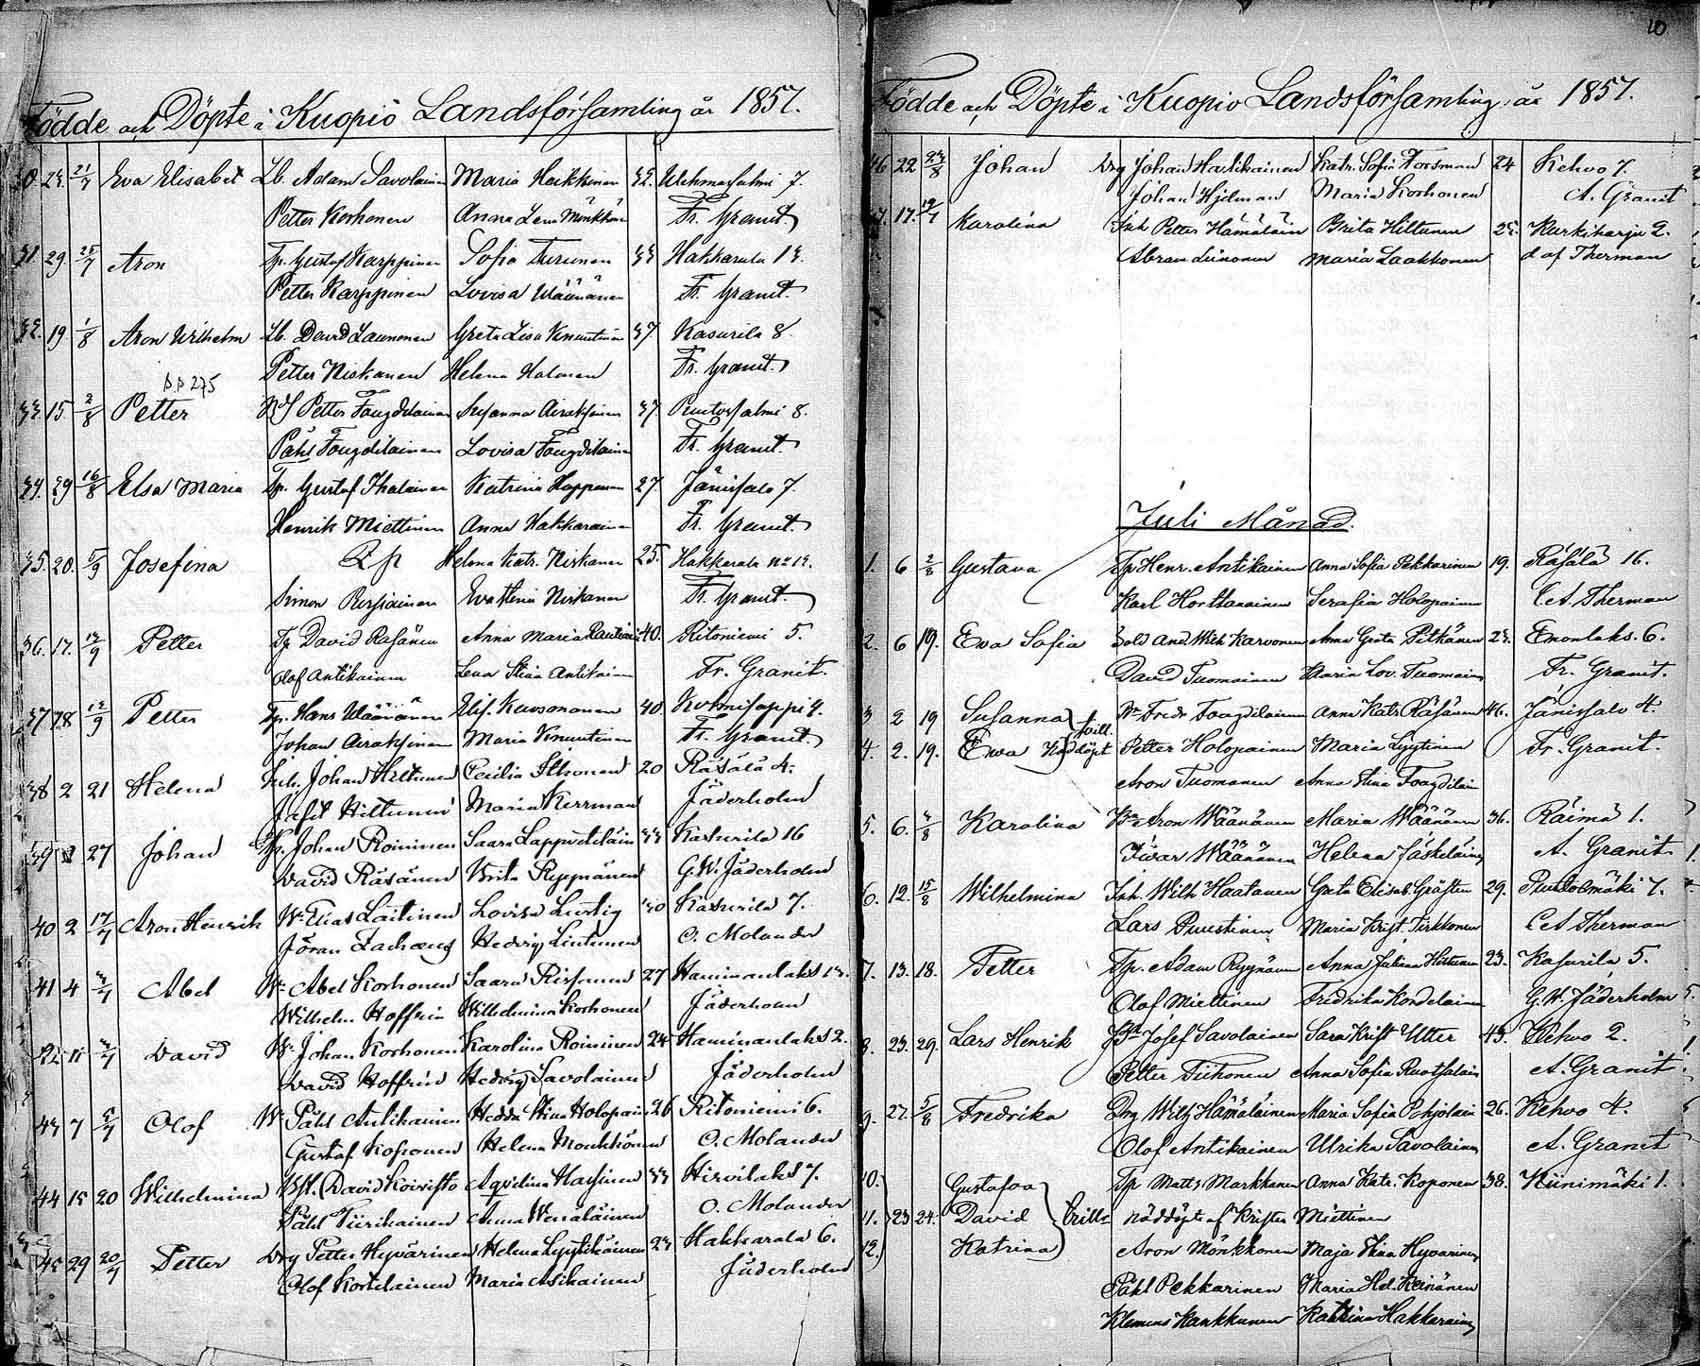 Födde och Döpte i Kuopio Landsförsamling år 1857.
30 24 21/7 Eva Elisabet Lb. Adam Savolainen Maria Heikkinen 32. Wehmasalmi 7.
Petter Korhonen Anna Lena Mönkkön Fr. Granit.
31 29. 25/7 Aron Tp. Gustaf Karppinen Sofia Turunen 33 Hakkarala 13.
Petter Karppinen Lovisa Wäänänen Fr. Granit.
32. 19 1/8 Aron Wilhelm Lb. David Launonen Greta Lisa Knuutinen 37 Kasurila 8.
Petter Niskanen Helena Halonen Fr. Granit.
p.p 275
33 15 2/8 Petter Petter Fougdilainen Susanna Airaksinen 37. Puutossalmi 8.
Påhl Fougdilainen Lovisa Fougdilainen Fr. Granit.
34. 29 16/8 Elsa Maria Tp. Gustaf Ihalainen Katrina Happonen 27. Jänissalo 7.
Henrik Miettinen Anna Hakkarainen Fr. Granit.
35. 20. 5/9 Josefina Helena Katr. Niskanen 25. Hakkarala No 13.
Simon Eva Stina Niskanen Fr. Granit.
36. 17. 13/9 Petter Tp David Räsänen Anna Maria Rautiain 40. Ritoniemi 5.
Olof Antikainen Lena Stina Antikainen Fr. Granit.
37 28 13/9 Petter Tp. Hans Wäänänen Elis. Kuosmonen 40. Kolmisoppi 4.
Johan Airaksinen Maria Knuutinen Fr. Granit.
38 2 21 Helena Inh. Johan Hiltunen Cecilia Ithonen 20 Räsälä 4.
Hiltunen Maria Kerrman Jäderholm
39 2 27 Johan Tp. Johan Roininen Saara Lappveteläin 33 Kasurila 16
David Räsänen Brita Ryynänen G.W. Jäderholm
40 2 17/7 Aron Henrik Wr Elias Laitinen Lovisa Lustig 30 Kasurila 7.
Jöran Zachoeus Hedvig Lintunen O. Molander
41 4 Abel Wr Abel Korhonen Saara Rissanen 27 Haminanlaks 13.
Wilhelm Hoffrin Wilhelmina Korhonen Jäderholm
42 11 David Wr Johan Korhonen Karolina Roininen 24 Haminanlaks 2.
David Hoffrin Hedvig Savolainen Jäderholm
43 7 Olof Wr Påhl Antikainen Hedda Stina Holopain 26 Ritoniemi 6.
Gustaf Koponen Helena Monkkönen O. Molander
44 18 20 Wilhelmina David Koivisto Agvelina Hassinen 33 Hirvilaks 7.
Påhl Tiirikainen Anna Wenäläinen O. Molander
45 29 20/7 Petter Drg Petter Hyvärinen Helena Lyytikäinen 23 Hakkarala 6.
Olof Kortelainen Maria Asikainen Jäderholm
10
Födde och Döpte i Kuopio Landsförsamling år 1857.
46 22 23/8 Johan Drg Johan Hartikainen Katr. Sofia Forsman 24 Kehvo 7.
Johan Hjelman Maria Korhonen A. Granit
47. 17. 19/7 Karolina Inh Petter Hämäläin Brita Hiltunen 25. Kurkiharju 2.
Abram Leinonen Maria Laakkonen d af Therman
Juli Månad.
1. 6 2/8 Gustava Tp Henr. Antikainen Anna Sofia Pekkarinen 19. Räsälä 16.
Karl Horttanainen Serafia Holopainen C A. Therman
2. 6 19. Ewa Sofia Sold And. Wilh Karvonen Anna Greta Pitkänen 23. Emonlaks. 6.
David Tuomainen Maria Lov. Tuomain Fr. Granit.
3 2 19 Susanna Wr Fredr Fougdilainen Anna Katr Räsänen 46. Jänissalo 4.
4. 2. 19. Ewa Nöddöpt tvill. Petter Holopainen Maria Lyytinen Fr. Granit.
Aron Tuomanen Anna Stina Fougdilain
5. 6. 4/8 Karolina Aron Wäänänen Maria Wäänänen 36. Räimä 1.
Iwar Wäänänen Helena Jäskeläin A. Granit
6. 12. 15/8 Wilhelmina Inh. Wilh Haatanen Greta Elisab. Gråsten 29. Puutosmäki 7.
Lars Puustinen Maria Krist. Pirkkonen C A Therman
7. 13. 18. Petter Tp. Adam Ryynänen Anna Juliana Hiltunen 23. Kasurila 5.
Olof Miettinen Fredrika Kordelainen G.W. Jäderholm
8. 23. 29. Lars Henrik Josef Savolainen Sara Krist Utter 43. Kehvo 2.
Petter Tiihonen Anna Sofia Ruotsalain A. Granit
9. 27. 5/8 Fredrika Drg Wilh Hämäläinen Maria Sofia Pohjolain 26. Kehvo 4.
Olof Antikainen Ulrika Savolainen A. Granit
10. Gustafva Tp Matts Markkanen Anna Katr. Koponen 38. Kiinimäki 1.
11. 23 24. David trill. nöddöpte af Krister Miettinen
12. Katrina Aron Mönkkönen Maja Stina Hyvärinen
Påhl Pekkarinen Maria Hel. Keinänen
Klemens Kankkunen Katrina Hakkarainen